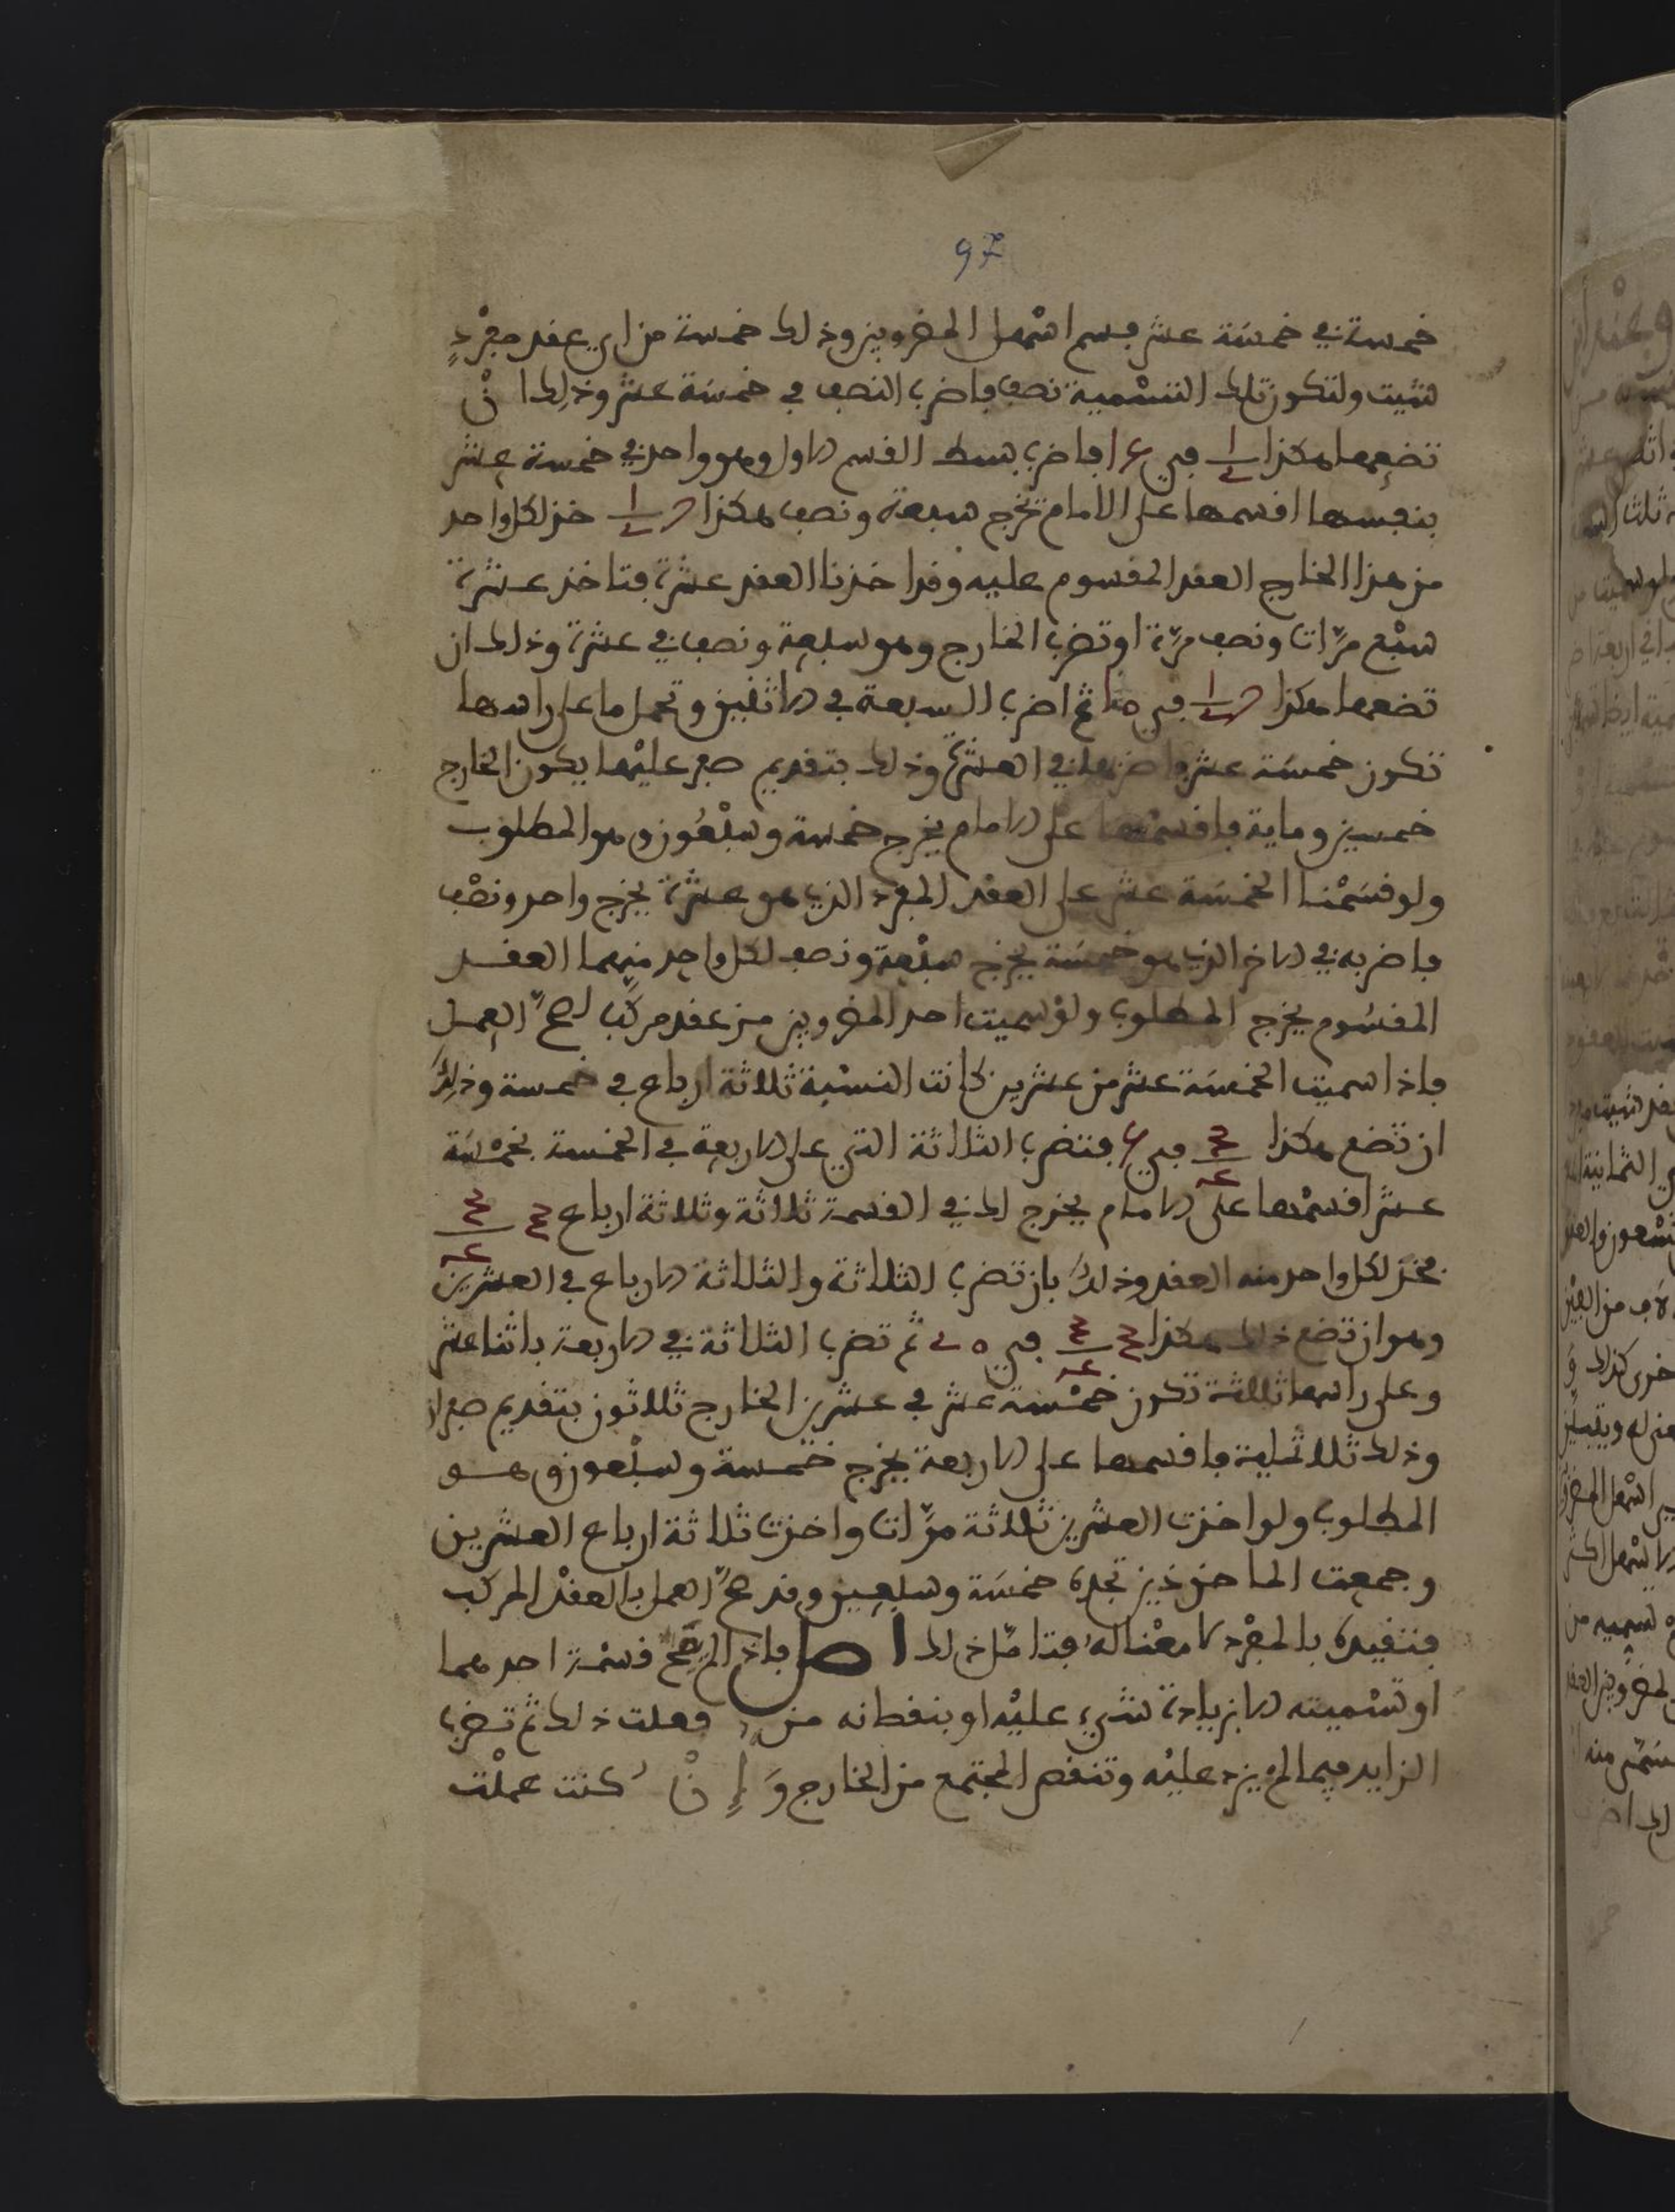 97
خمسة في خمسة عشر فسم اسهل المضروبين وذلك خمسة من اي عقد مفرد
شئت ولتكون تلك التسمية نصف فاضرب النصف في خمسة عشر وذلك ان
تضعهما هكذا فاضرب بسط القسم الاول وهو واحد في خمسة عشر
بنفسها اقسمها على الامام تخرج سبعة ونصف هكذا خذ لكل واحد
من هذا الخارج العقد المقسوم عليه وقد اخذنا العقد عشرة فتاخذ عشرة
سبع مرات ونصف مرة او تضرب الخارج وهو سبعة ونصف في عشرة وذلك ان
تضعهما هكذا ثم اضرب السبعة في الاثنين وتحمل ما على راسها
تكون خمسة عشر واضربها في العشرة وذلك بتقديم صفر عليها يكون الخارج
خمسين وماية فاقسمها على الامام يخرج خمسة وسبعون وهو المطلوب
ولو قسمنا الخمسة عشر على العقد المفرد الذي هو عشرة يخرج واحد ونصف
فاضربه في الاخر الذي هو خمسة يخرج سبعة ونصف لكل واحد منهما العقد
المقسوم يخرج المطلوب ولو سميت احد المضروبين من عقد مركب لصح العمل
فاذا سميت الخمسة عشر من عشرين كانت النسبة ثلاثة ارباع في خمسة وذلك
ان تضع هكذا فتضرب الثلاثة التي على الاربعة في الخمسة بخمسة
عشر اقسمها على الامام يخرج لك في القسمة ثلاثة وثلاثة ارباع
فخذ لكل واحد منه العقد وذلك بان تضرب الثلاثة والثلاثة الارباع في العشرين
وهو ان تضع ذلك هكذا ثم تضرب الثلاثة في الاربعة باثنا عشر
وعلى راسها ثلاثة تكون خمسة عشر في عشرين الخارج ثلاثون بتقديم صفر
وذلك ثلاثماية فاقسمها على الاربعة يخرج خمسة وسبعون وهو
المطلوب ولو اخذت العشرين ثلاثة مرات واخذت ثلاثة ارباع العشرين
وجمعت الماخوذين تجده خمسة وسبعين وقد صح العمل بالعقد المركب
فتقييده بالمفرد لا معنا له فتامل ذلك اصل فاذا لم يصح قسمة احدهما
او تسميته الا بزيادة شيء عليه او بنقصانه منه فعلت ذلك ثم تضرب
الزايد فيما لم يزد عليه وتنقص المجتمع من الخارج وان كنت عملت